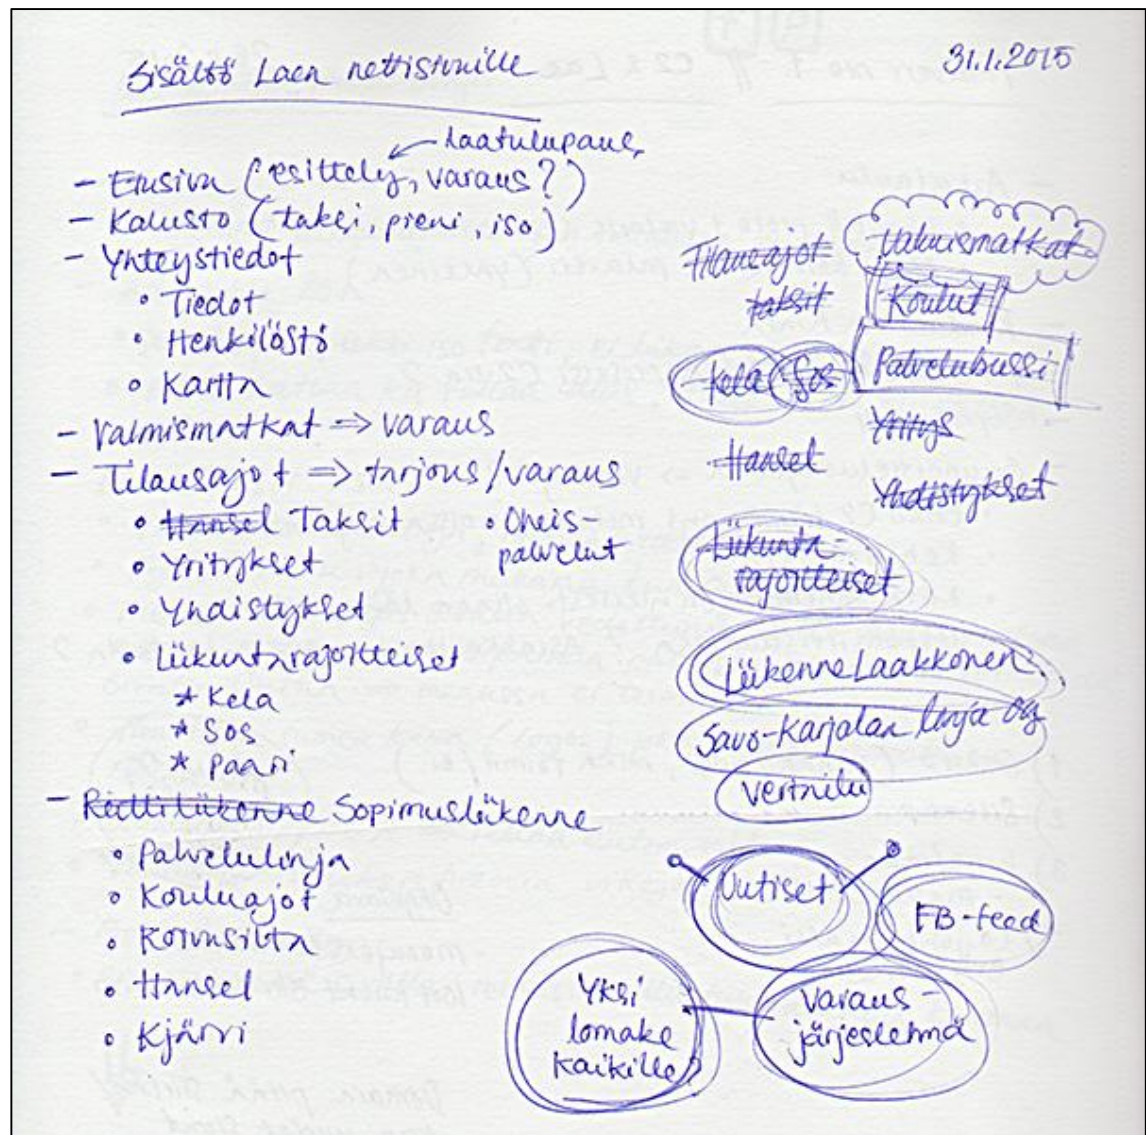 Sisältö Laen nettisivuille
31.1.2015
laatulupaus
- Etusivu (esittely, varaus?)
- Kalusto (taksi, pieni, iso)
- Yhteystiedot
• Tiedot
• Henkilöstö
• Kartta
- Valmismatkat => varaus
- Tilausajot => tarjous/varaus
• Hansel Taksit
• Yritykset
• Yhdistykset
• Liikuntarajoitteiset
* Kela
* Sos
* Paari
• Oheis
palvelut
- Reittiliikenne Sopimusliikenne
• Palvelulinja
• Kouluajot
• Koivusilta
• Hansel
• Kjärvi
Tilausajot
taksit
Valmismatkat
Koulut
Kela Sos
Palvelubussi
Hansel
Yritys
Yhdistykset
Liikunta-
rajoitteiset
Liikenne Laakkonen
Savo-Karjalan linja oy
Vertailu
Uutiset
FB-feed
Yksi
lomake
kaikille?
Varaus-
järjestelmä